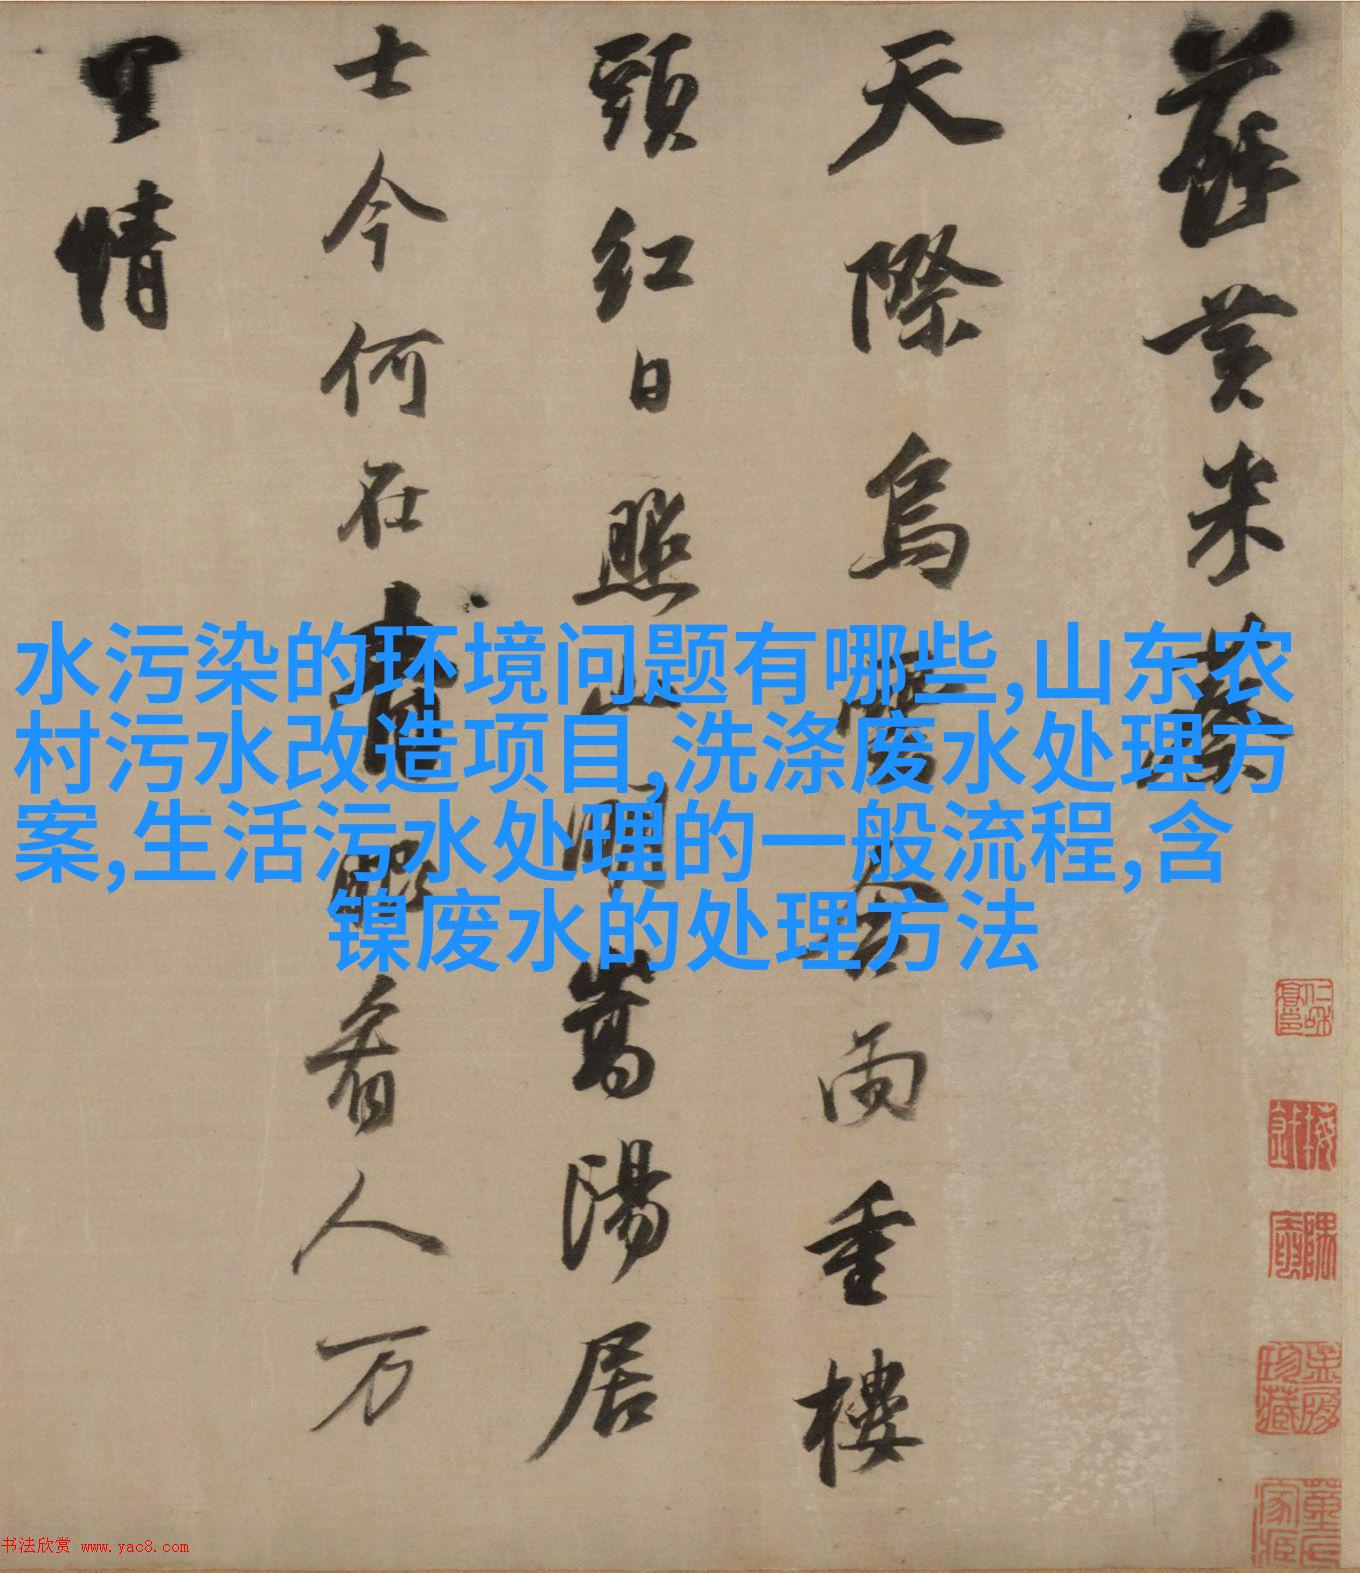 蘇黃米蔡
天際烏雲含雨重樓
頭紅日照山明嵩陽居
士今何在青眼看人万
里情
水污染的环境问题有哪些,山东农
村污水改造项目,洗涤废水处理方
案,生活污水处理的一般流程,含
镍废水的处理方法
书法欣赏 www.yac8.com